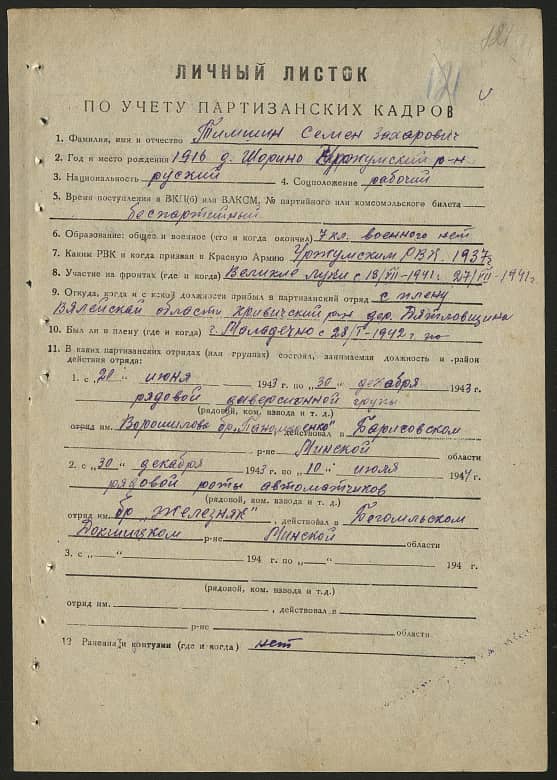 121
121
ЛИЧНЫЙ ЛИСТОК
ПО УЧЕТУ ПАРТИЗАНСКИХ КАДРОВ
1. Фамилия, имя и отчество Тимшин Семен Захарович
2. Год и место рождения 1916 д. Шорино Уржумский р-н
3. Национальность руский 4. Соцположение рабочий
5. Время поступления в ВКП(б) или ВЛКСМ, № партийного или комсомольского билета
Беспартийный
6. Образование: общее и военное (что и когда окончил) 7 кл. военного нет
7. Каким РВК и когда призван в Красную Армию Уржумским РВК. 1937г
8. Участие на фронтах (где и когда) Великие луки с 18/VII-1941г. 27/VIII-1941г.
9. Откуда, когда и с какой должности прибыл в партизанский отряд с плену
Вялейской области Кривичский р-н дер. Бятловщина
10. Был ли в плену (где и когда) г. Маладечно с 28/I-1942г. по
11. В каких партизанских отрядах (или группах) состоял, занимаемая должность и район
действия отряда:
1. с „20" июня 1943 г. по „30" декабря 1943 г.
рядовой диверсионной групы
(рядовой, ком. взвода и т. д.)
отряд им. Ворошилова бр. действовал в Барисовском
р-не Минской области
2. с „30" декабря 1943 г. по „10" июля 1944 г.
рядовой роты автоматчиков
(рядовой, ком. взвода и т.д.)
отряд им. бр „Железняк", действовал в Бегомльском
Докшицком р-не Минской области
3. с „—" 194 г. по „—" 194 г.
(рядовой, ком. взвода и т.д.)
отряд им. , действовал в
р-не области
12 Ранения и контузии (где и когда) нет